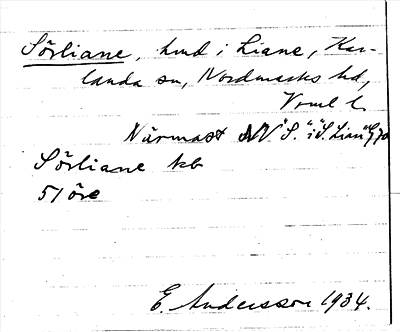 Sörliane, hmd i Liane, Kar-
landa sn, Nordmarks hd,
Vrml l.
Närmast NV "S." i "S. Lian" G 70
Sörliane kb
51 öre
E. Andersson 1934.